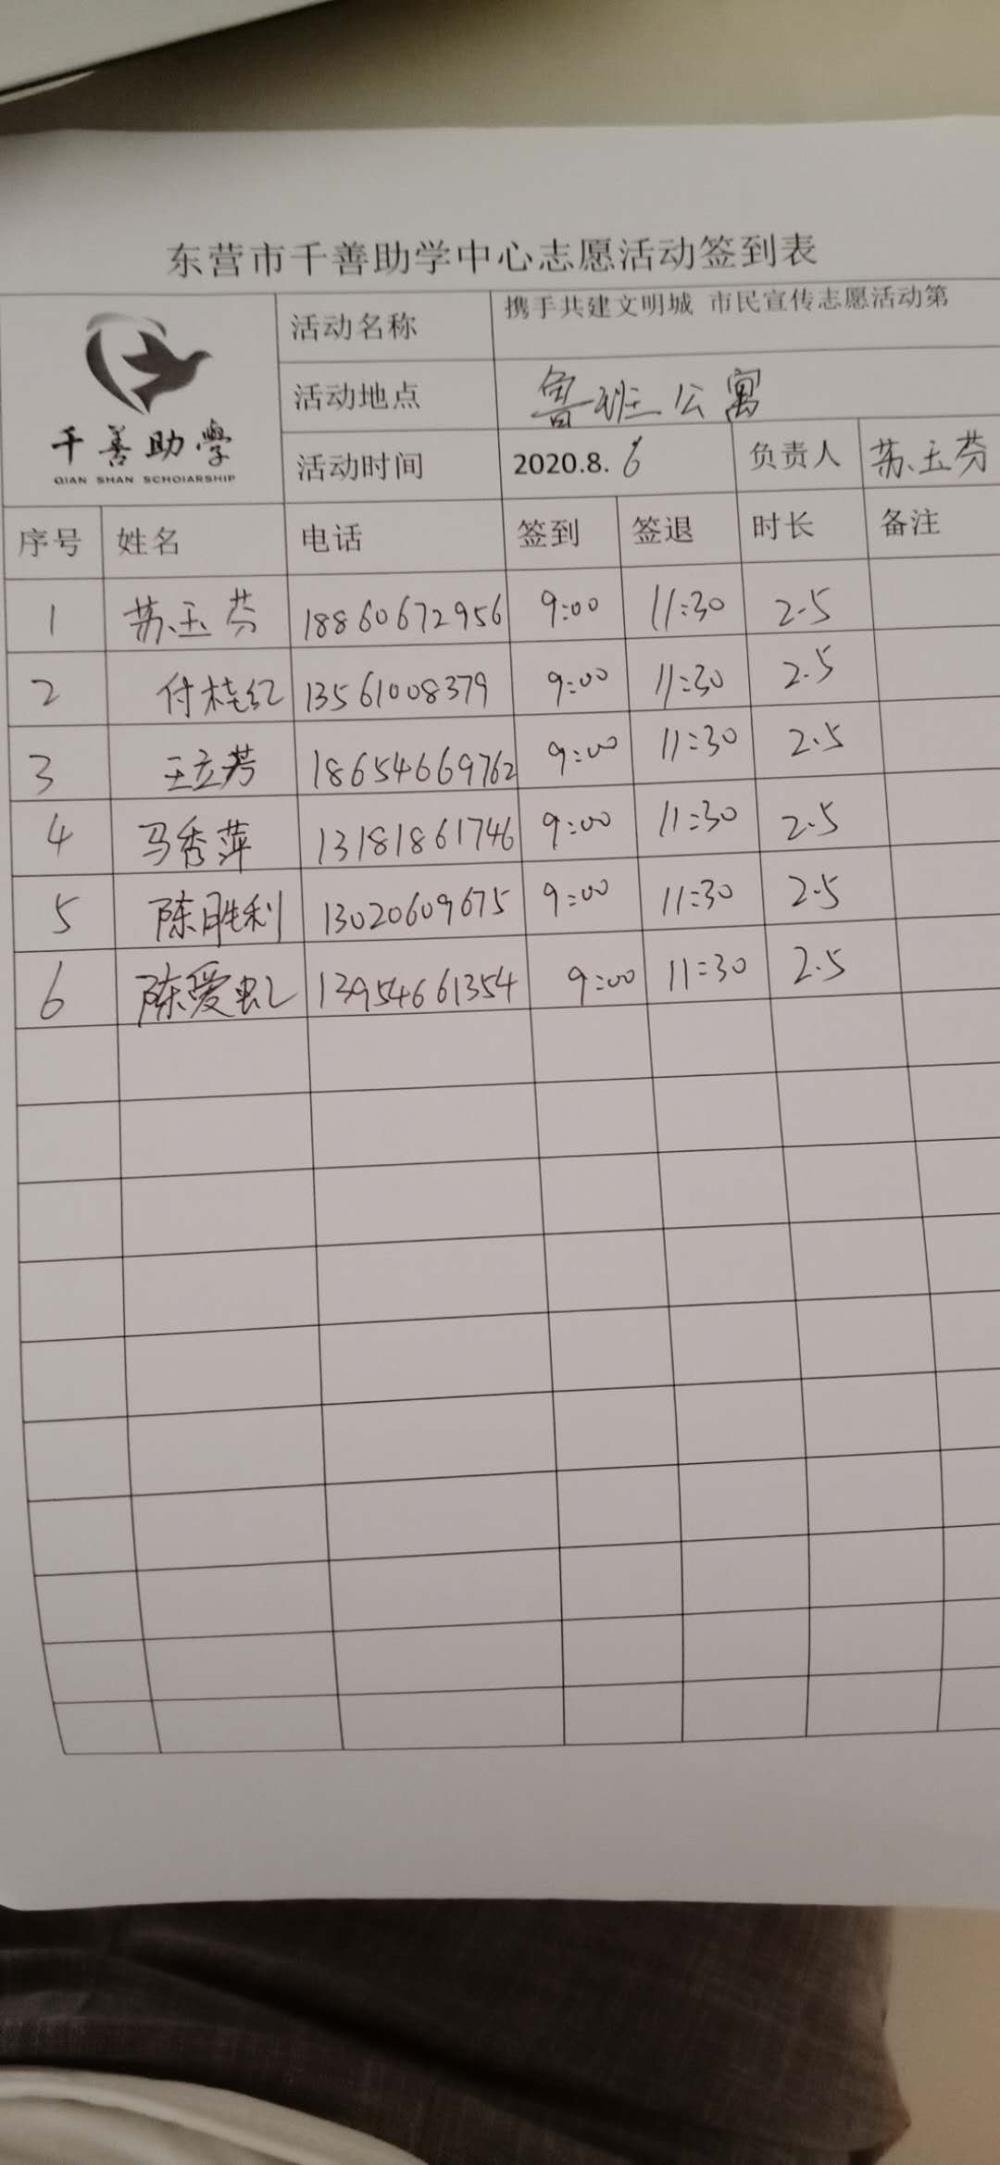 东营市千善助学中心志愿活动签到表
千善助學
QIAN SHAN SCHOIARSHIP
活动名称 携手共建文明城 市民宣传志愿活动第
活动地点 鲁班公寓
活动时间 2020.8.6 负责人 苏玉芬
序号 姓名 电话 签到 签退 时长 备注
1 苏玉芬 18860672956 9:00 11:30 2.5
2 付桂红 13561008379 9:00 11:30 2.5
3 王立芳 18654669762 9:00 11:30 2.5
4 马秀萍 13181861746 9:00 11:30 2.5
5 陈胜利 13020609675 9:00 11:30 2.5
6 陈爱虹 13954661354 9:00 11:30 2.5